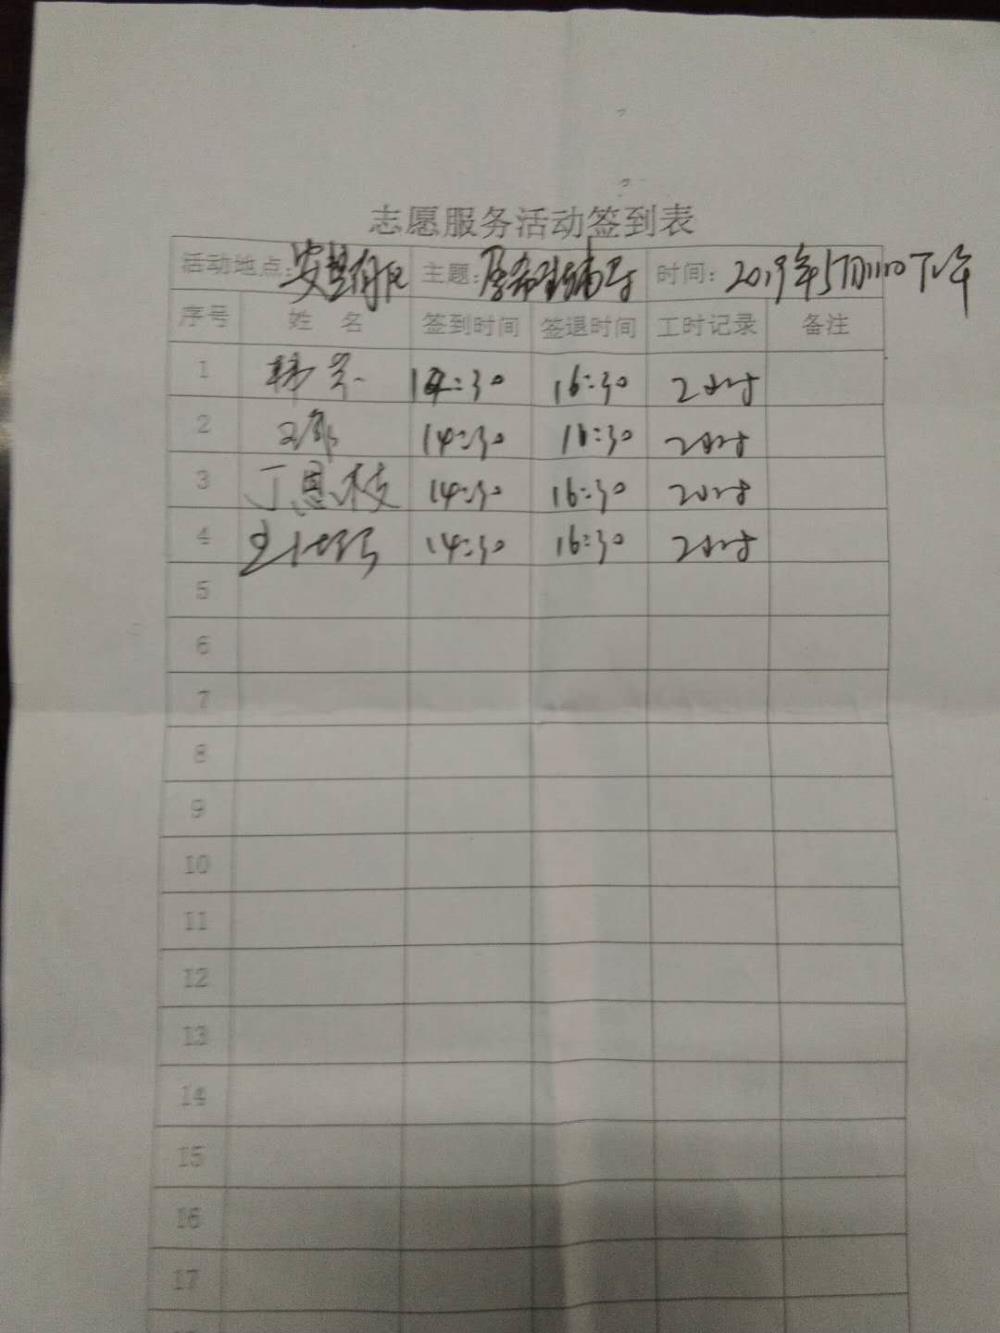 志愿服务活动签到表
活动地点: 主题: 时间: 2019年5月11日下午
序号 姓 名 签到时间 签退时间 工时记录 备注
1 14:30 16:30 2小时
2 14:30 16:30 2小时
3 丁恩枝 14:30 16:30 2小时
4 14:30 16:30 2小时
5
6
7
8
9
10
11
12
13
14
15
16
17